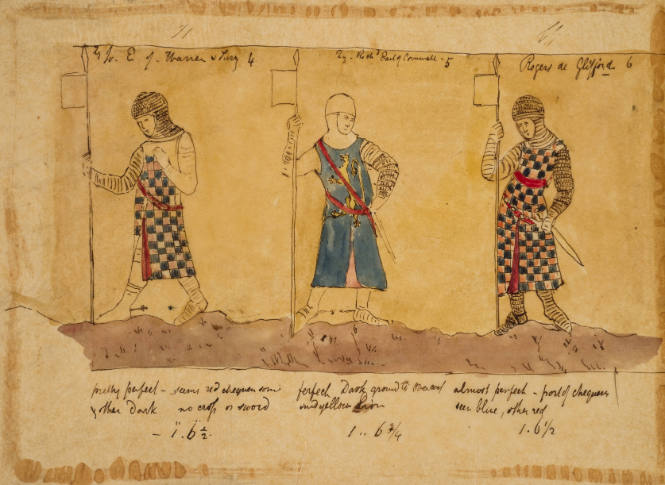 E. of Warren & Surry 4
Richd Earl of Cornwall - 5
Rogers de Clifford 6
pretty perfect - seems red chequer some
& other Dark no cross or sword
- 1" 6 1/2.
perfect Dark ground to surcoat
and yellow Lion
1 .. 6 3/4
almost perfect - part of chequers
seen blue, other red
1. 6 1/2